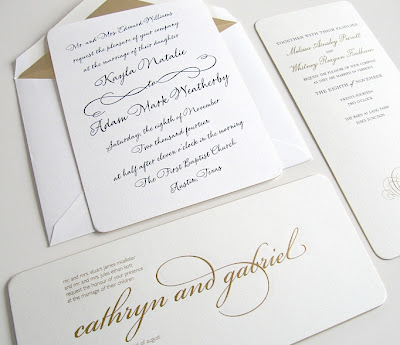 Mr. and Mrs. Edward Williams
request the pleasure of your company
at the marriage of their daughter
Kayla Natalie
to
Adam Mark Weatherby
Saturday, the eighth of November
Two thousand fourteen
at half after eleven o'clock in the morning
The First Baptist Church
Austin, Texas
TOGETHER WITH THEIR FAMILIES
Melissa Ainsley
and
Whitney Reagan
REQUEST THE PLEASURE OF YOUR COMPANY
AS THEY ARE
THE EIGHTH of NOVEMBER
TWENTY FOURTEEN
O'CLOCK
THE BARN AT LONG FARM
JUNCTION
mr. and mrs. stuart james mcallister
and mr. and mrs. julius ethan
request the honour of your presence
at the marriage of their children
cathryn and gabriel
of august